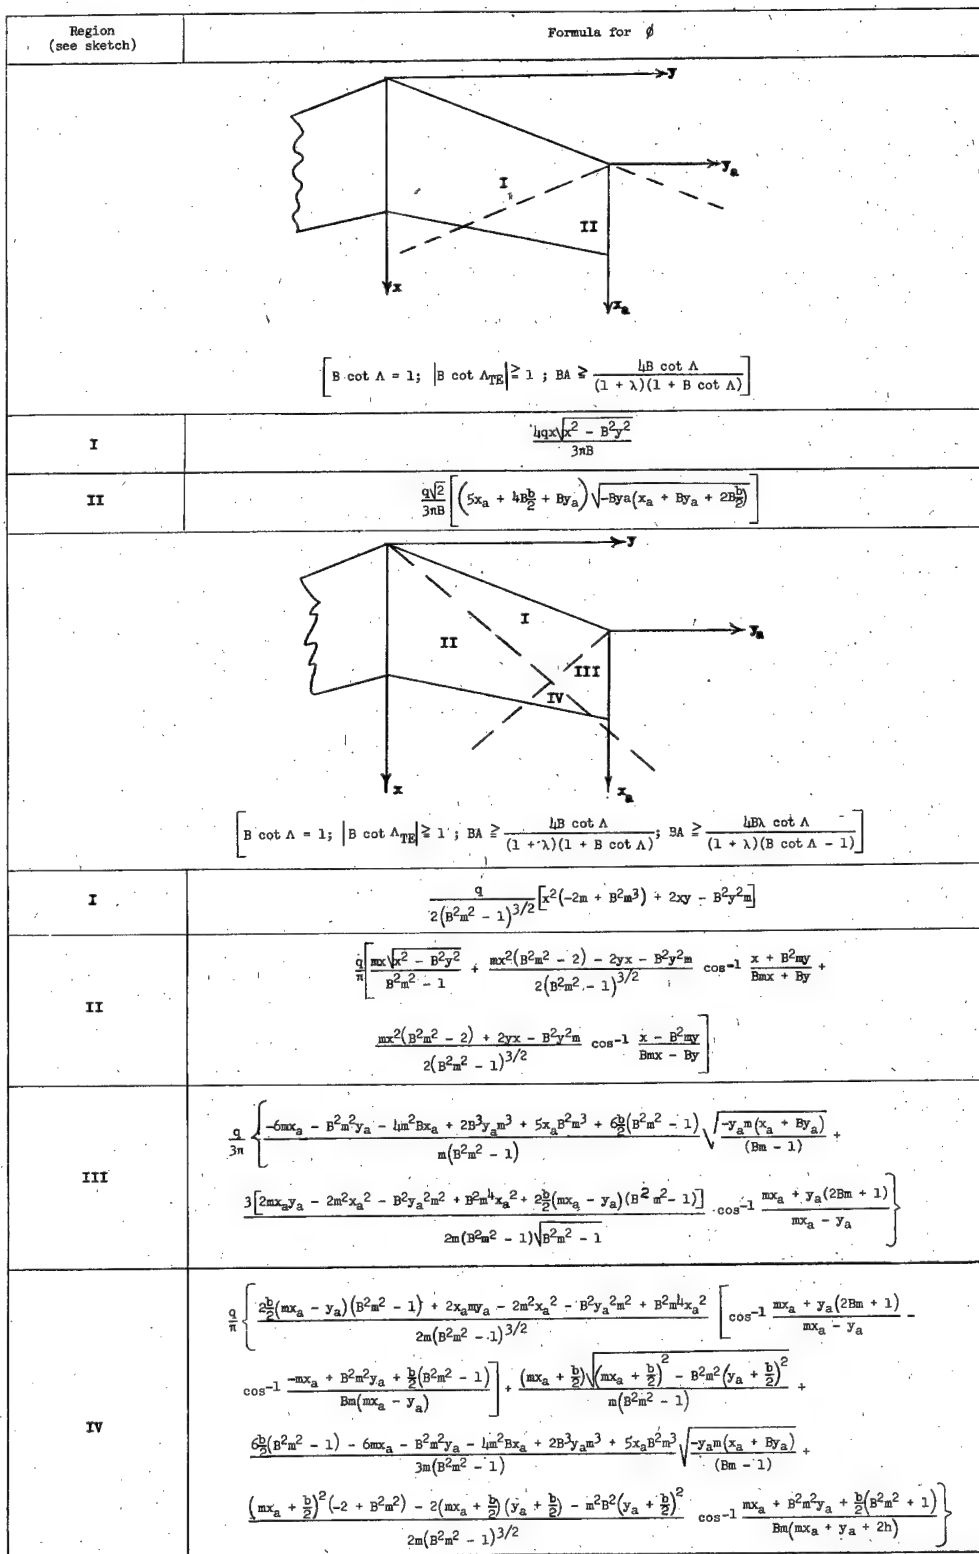 Region
(see sketch)
Formula for ∅
y
y_a
I
II
x
x_a
[B cot Λ = 1; |B cot Λ_TE| ≧ 1 ; BA ≧ 4B cot Λ / ((1 + λ)(1 + B cot Λ))]
I
4qx√(x² - B²y²) / 3πB
II
q√2 / 3πB [(5x_a + 4B b/2 + By_a) √(-Bya(x_a + By_a + 2B b/2))]
y
I
y_a
II
III
IV
x
x_a
[B cot Λ = 1; |B cot Λ_TE| ≧ 1 ; BA ≧ 4B cot Λ / ((1 + λ)(1 + B cot Λ)); BA ≧ 4Bλ cot Λ / ((1 + λ)(B cot Λ - 1))]
I
q / 2(B²m² - 1)^3/2 [x²(-2m + B²m³) + 2xy - B²y²m]
II
q/π [mx√(x² - B²y²) / (B²m² - 1) + (mx²(B²m² - 2) - 2yx - B²y²m) / 2(B²m² - 1)^3/2 cos⁻¹ (x + B²my) / (Bmx + By) +
(mx²(B²m² - 2) + 2yx - B²y²m) / 2(B²m² - 1)^3/2 cos⁻¹ (x - B²my) / (Bmx - By)]
III
q/3π {(-6mx_a - B²m²y_a - 4m²Bx_a + 2B³y_am³ + 5x_aB²m³ + 6 b/2 (B²m² - 1)) / m(B²m² - 1) √(-y_am(x_a + By_a) / (Bm - 1)) +
3[2mx_ay_a - 2m²x_a² - B²y_a²m² + B²m⁴x_a² + 2 b/2 (mx_a - y_a)(B²m² - 1)] / 2m(B²m² - 1)√(B²m² - 1) · cos⁻¹ (mx_a + y_a(2Bm + 1)) / (mx_a - y_a)}
IV
q/π {(2 b/2 (mx_a - y_a)(B²m² - 1) + 2x_amy_a - 2m²x_a² - B²y_a²m² + B²m⁴x_a²) / 2m(B²m² - 1)^3/2 [cos⁻¹ (mx_a + y_a(2Bm + 1)) / (mx_a - y_a) -
cos⁻¹ (-mx_a + B²m²y_a + b/2 (B²m² - 1)) / Bm(mx_a - y_a)] + (mx_a + b/2)√((mx_a + b/2)² - B²m²(y_a + b/2)²) / m(B²m² - 1) +
(6 b/2 (B²m² - 1) - 6mx_a - B²m²y_a - 4m²Bx_a + 2B³y_am³ + 5x_aB²m³) / 3m(B²m² - 1) √(-y_am(x_a + By_a) / (Bm - 1)) +
((mx_a + b/2)²(-2 + B²m²) - 2(mx_a + b/2)(y_a + b/2) - m²B²(y_a + b/2)²) / 2m(B²m² - 1)^3/2 cos⁻¹ (mx_a + B²m²y_a + b/2 (B²m² + 1)) / Bm(mx_a + y_a + 2h)}